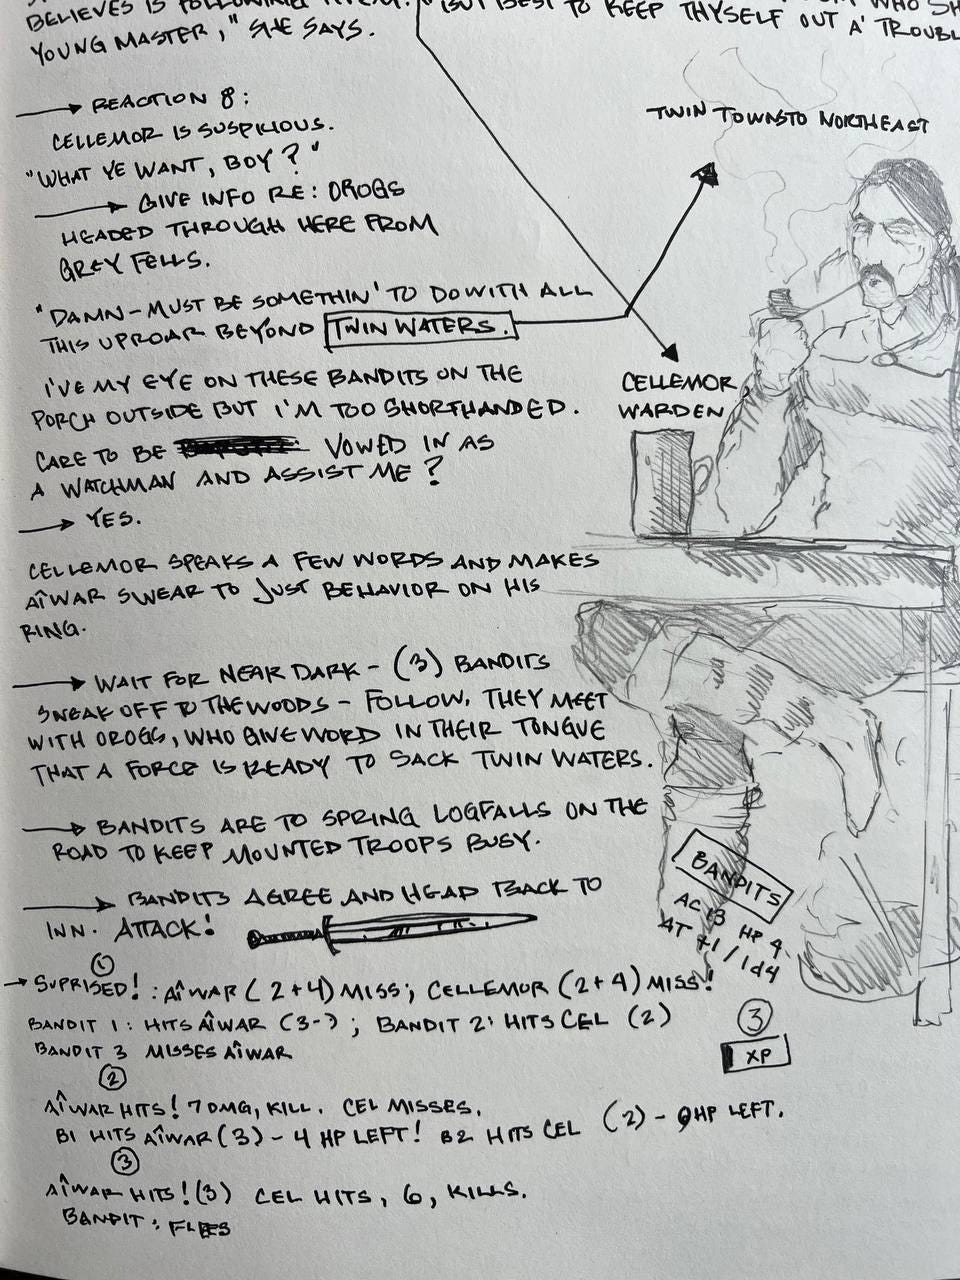 BELIEVES IS FOLLOWING
YOUNG MASTER," SHE SAYS.
BUT BEST TO KEEP THYSELF OUT A' TROUBL
WHO SH
→ REACTION 8:
CELLEMOR IS SUSPICIOUS.
"WHAT YE WANT, BOY?"
→ GIVE INFO RE: OROGS
HEADED THROUGH HERE FROM
GREY FELLS.
"DAMN - MUST BE SOMETHIN' TO DO WITH ALL
THIS UPROAR BEYOND TWIN WATERS.
TWIN TOWNS TO NORTHEAST
I'VE MY EYE ON THESE BANDITS ON THE
PORCH OUTSIDE BUT I'M TOO SHORTHANDED.
CARE TO BE VOWED IN AS
A WATCHMAN AND ASSIST ME?
→ YES.
CELLEMOR
WARDEN
CELLEMOR SPEAKS A FEW WORDS AND MAKES
AÎWAR SWEAR TO JUST BEHAVIOR ON HIS
RING.
→ WAIT FOR NEAR DARK - (3) BANDITS
SNEAK OFF TO THE WOODS - FOLLOW, THEY MEET
WITH OROGS, WHO GIVE WORD IN THEIR TONGUE
THAT A FORCE IS READY TO SACK TWIN WATERS.
→ BANDITS ARE TO SPRING LOGFALLS ON THE
ROAD TO KEEP MOUNTED TROOPS BUSY.
→ BANDITS AGREE AND HEAD BACK TO
INN. ATTACK!
BANDITS
AC 13 HP 4
AT +1 / 1d4
①
→ SUPRISED! : AÎWAR (2+4) MISS; CELLEMOR (2+4) MISS!
BANDIT 1: HITS AÎWAR (3-); BANDIT 2: HITS CEL (2)
BANDIT 3 MISSES AÎWAR
③
XP
②
AÎWAR HITS! 7 DMG, KILL. CEL MISSES.
B1 HITS AÎWAR (3) - 4 HP LEFT! B2 HITS CEL (2) - 9HP LEFT.
③
AÎWAR HITS! (3) CEL HITS, 6, KILLS.
BANDIT: FLEES